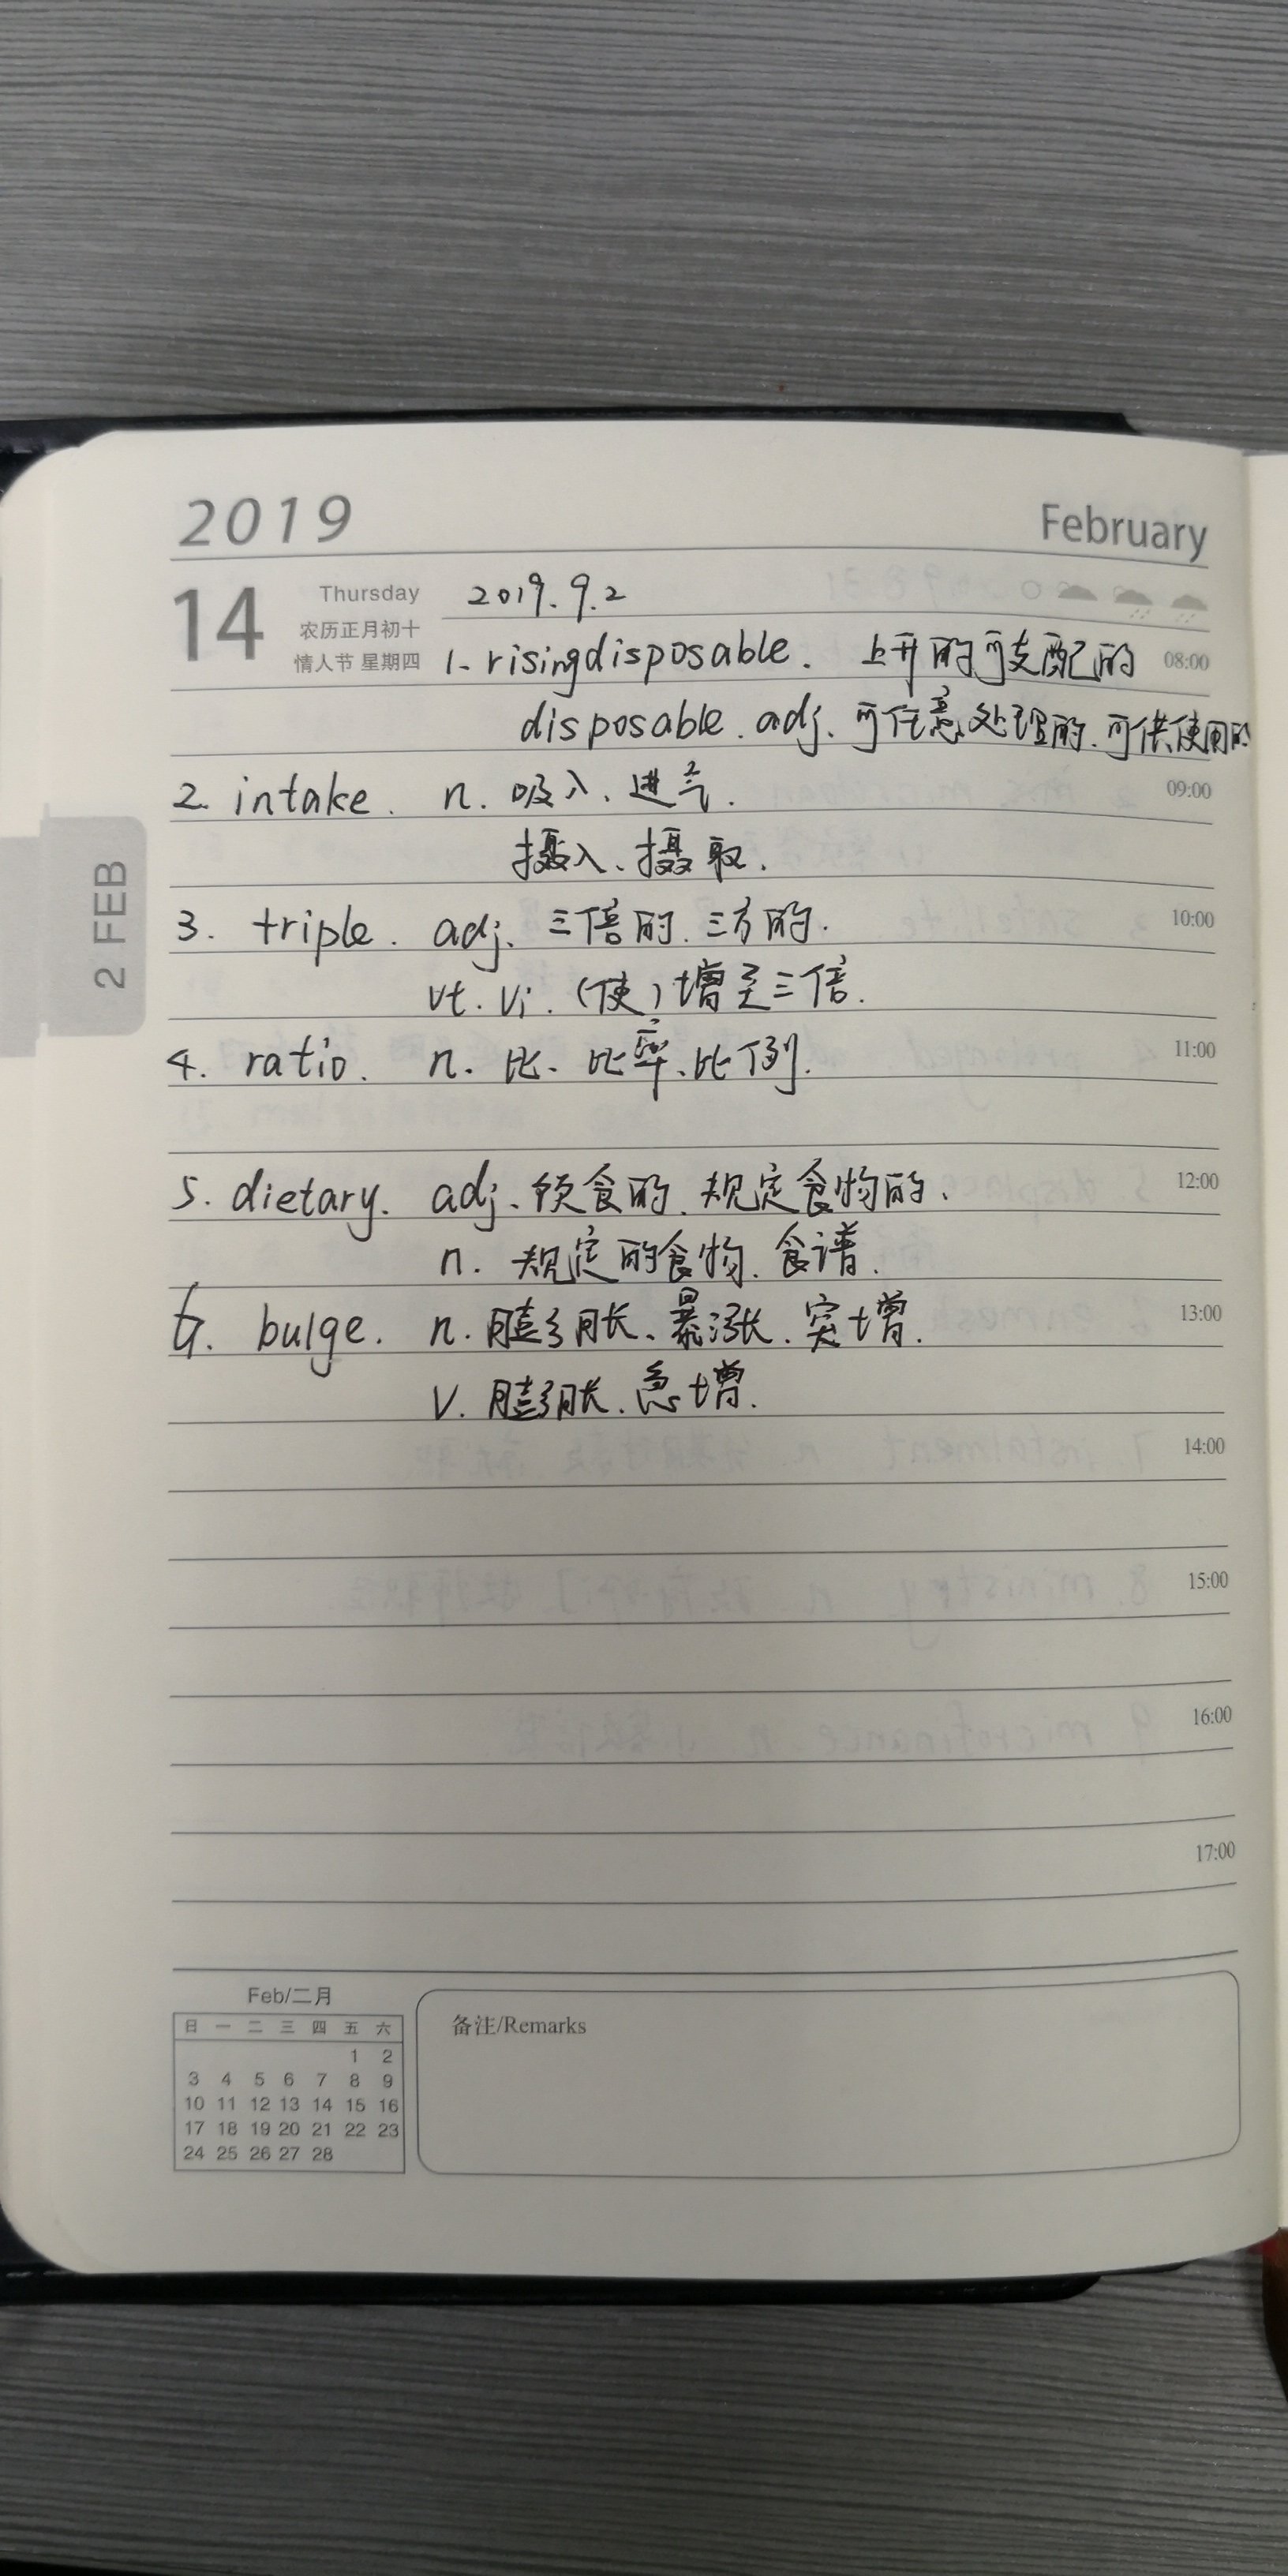 2019 February
14 Thursday 2019.9.2
农历正月初十
情人节 星期四 1. risingdisposable. 上升的可支配的 08:00
disposable. adj. 可任意处理的、可供使用的
2. intake. n. 吸入、进气. 09:00
摄入、摄取.
3. triple. adj. 三倍的、三方的. 10:00
vt. vi. (使)增至三倍.
4. ratio. n. 比、比率、比例. 11:00
5. dietary. adj. 饮食的、规定食物的、 12:00
n. 规定的食物、食谱.
6. bulge. n. 膨胀、暴涨、突增. 13:00
v. 膨胀、急增.
14:00
15:00
16:00
17:00
2 FEB
Feb/二月
日 一 二 三 四 五 六
1 2
3 4 5 6 7 8 9
10 11 12 13 14 15 16
17 18 19 20 21 22 23
24 25 26 27 28
备注/Remarks